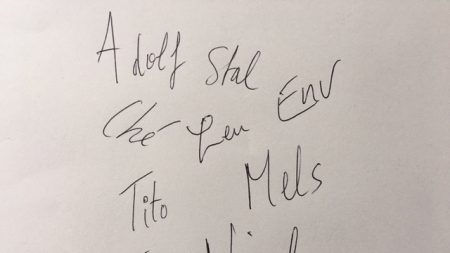 Adolf Stal
Ché Len Env
Tito Mels